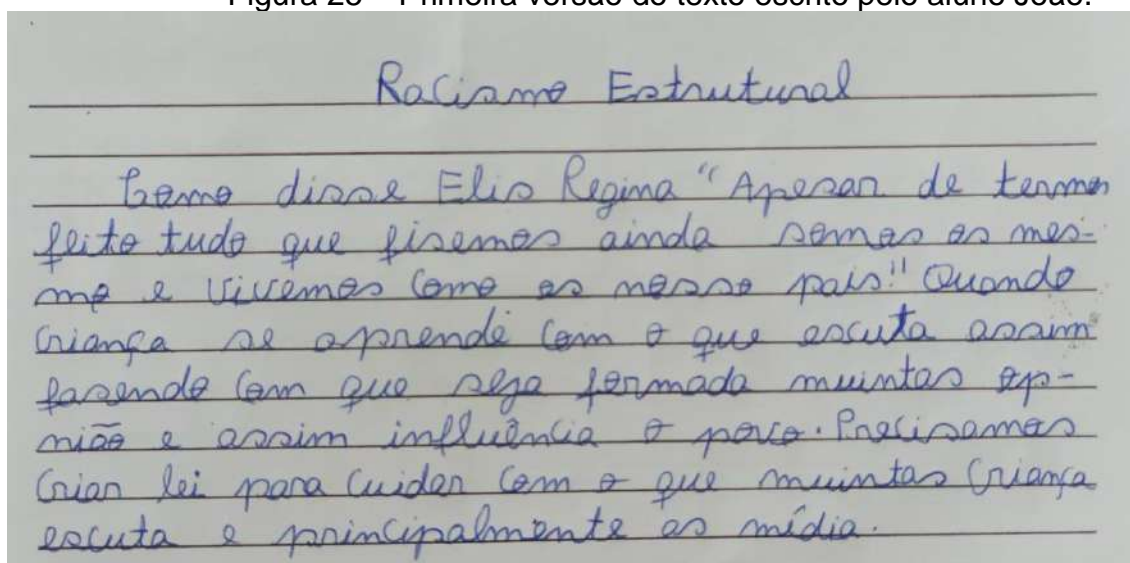 Figura 28 – Primeira versão do texto escrito pelo aluno João.
Racismo Estrutural
Como disse Elis Regina “Apesar de termos
feito tudo que fisemos ainda somos os mes-
mo e vivemos como os nosso pais" Quando
criança se aprende com o que escuta assim
fasendo com que seja formada muintas op-
nião e assim influência o povo. Precisamos
criar lei para cuidar com o que muintas criança
escuta e principalmente as mídia.